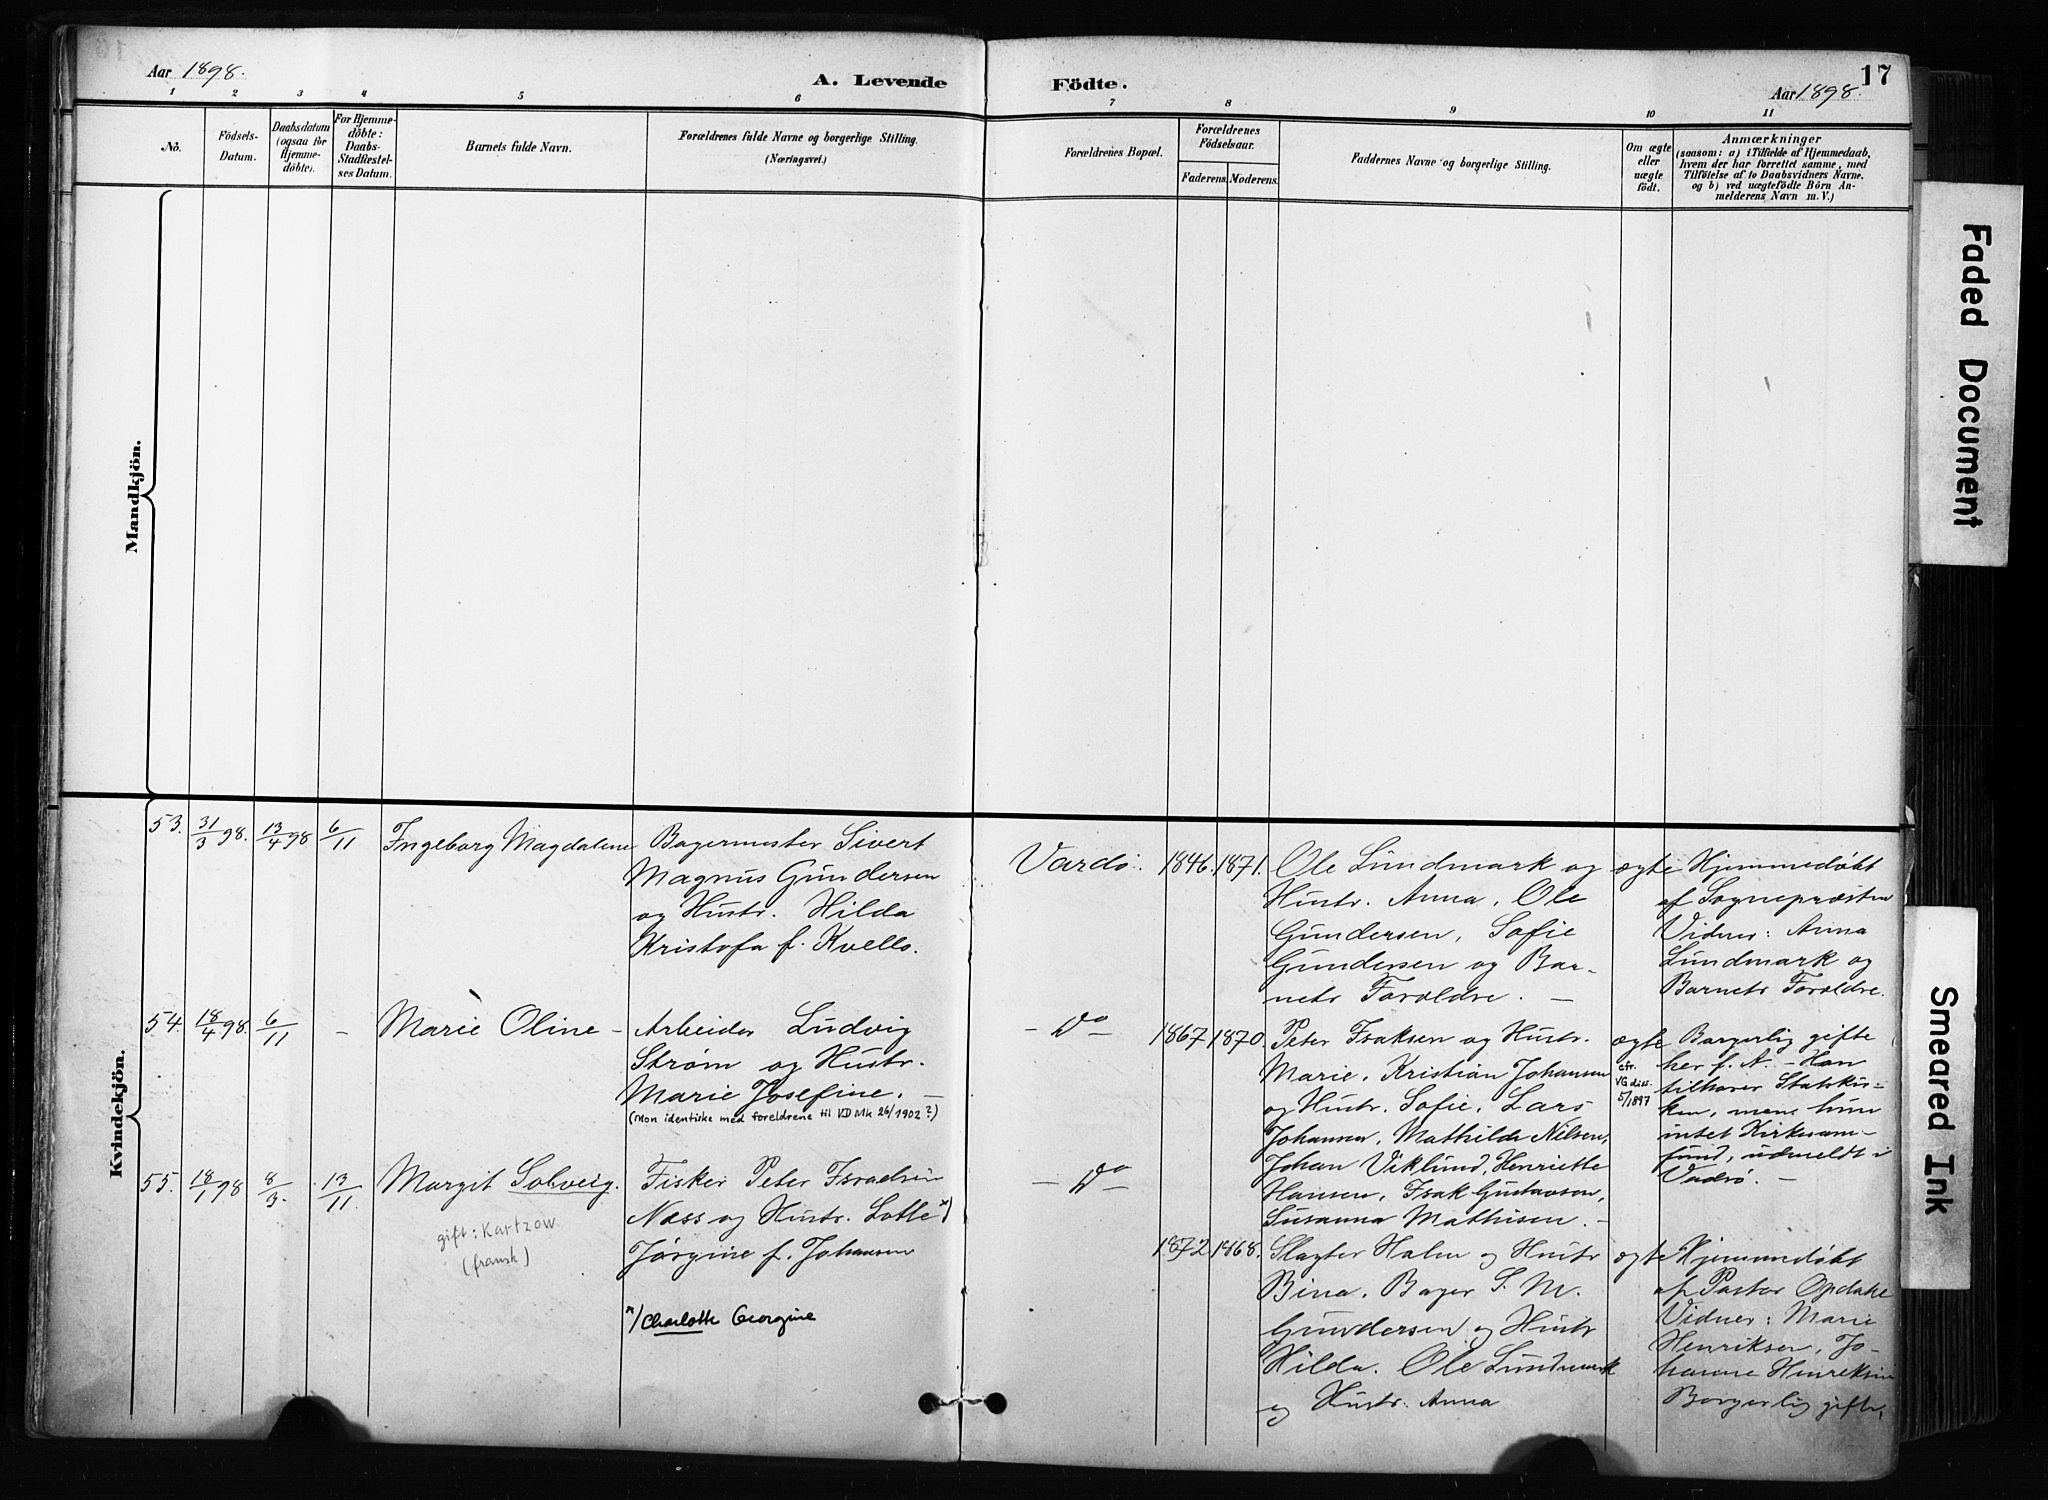 Aar 1898.
A. Levende
Födte.
Aar 1898.
17
1 2 3 4 5 6 7 8 9 10 11
No.
Födsels-
Datum.
Daabsdatum
(ogsaa for
Hjemme-
döbte).
For Hjemme-
döbte:
Daabs-
Stadfæstel-
ses Datum.
Barnets fulde Navn.
Forældrenes fulde Navne og borgerlige Stilling.
(Næringsvei.)
Forældrenes Bopæl.
Forældrenes
Födselsaar.
Faderens. Moderens.
Faddernes Navne og borgerlige Stilling.
Om ægte
eller
uægte
födt.
Anmærkninger
(saasom: a) i Tilfælde af Hjemmedaab,
hvem der har forrettet samme, med
Tilföielse af to Daabsvidners Navne,
og b) ved uægtefödte Börn An-
melderens Navn m. V.)
Mandkjön.
Kvindekjön.
53. 31/3 98. 13/4 98 6/11
Ingeborg Magdalene
Bagermester Sivert
Magnus Gundersen
og Hustr. Hilda
Kristofa f. Kvello.
Vardö.
1846. 1871.
Ole Lundmark og
Hustr. Anna, Ole
Gundersen, Sofie
Gundersen og Bar-
nets Foreldre. —
ægte
Hjemmedøbt
af Sognepræsten
Vidner: Anna
Lundmark og
Barnets Foreldre.
54. 18/4 98. 6/11 -
Marie Oline -
Arbeider Ludvig
Strøm og Hustr.
Marie Josefine. —
(Mon identiske med foreldrene til KD Mk 26/1902?)
- Do -
1867 1870.
Peter Isaksen og Hustr.
Marie, Kristian Johansen
og Hustr. Sofie, Lars
Johannsen, Mathilde Nilsen,
Johan Viklund, Henriette
Hansen, Isak Gustavsen,
Susanna Mathisen. -
ægte
cfr.
VG diss.
5/1897
Borgerlig gifte
her f. A. - Han
tilhører Statskir-
ken, mens hun
intet Kirkesam-
fund, udmeldt i
Vadsö. -
55. 18/1 98 8/3. 13/11.
Margit Solveig.
gift: Kartzow
(fransk)
Fisker Peter Israelsen
Næss og Hustr. Lotte *)
Jørgine f. Johansen
*) Charlotte Georgine
- Do -
1872 1868.
Slagter Holm og Hustr
Bina, Bager S. M.
Gundersen og Hustr
Hilda. Ole Lundmark
og Hustr. Anna
ægte
Hjemmedøbt
af Pastor Opdahl
Vidner: Marie
Henriksen, Jo-
hanne Henriksen
Borgerlig gifte.
Faded Document
Smeared Ink